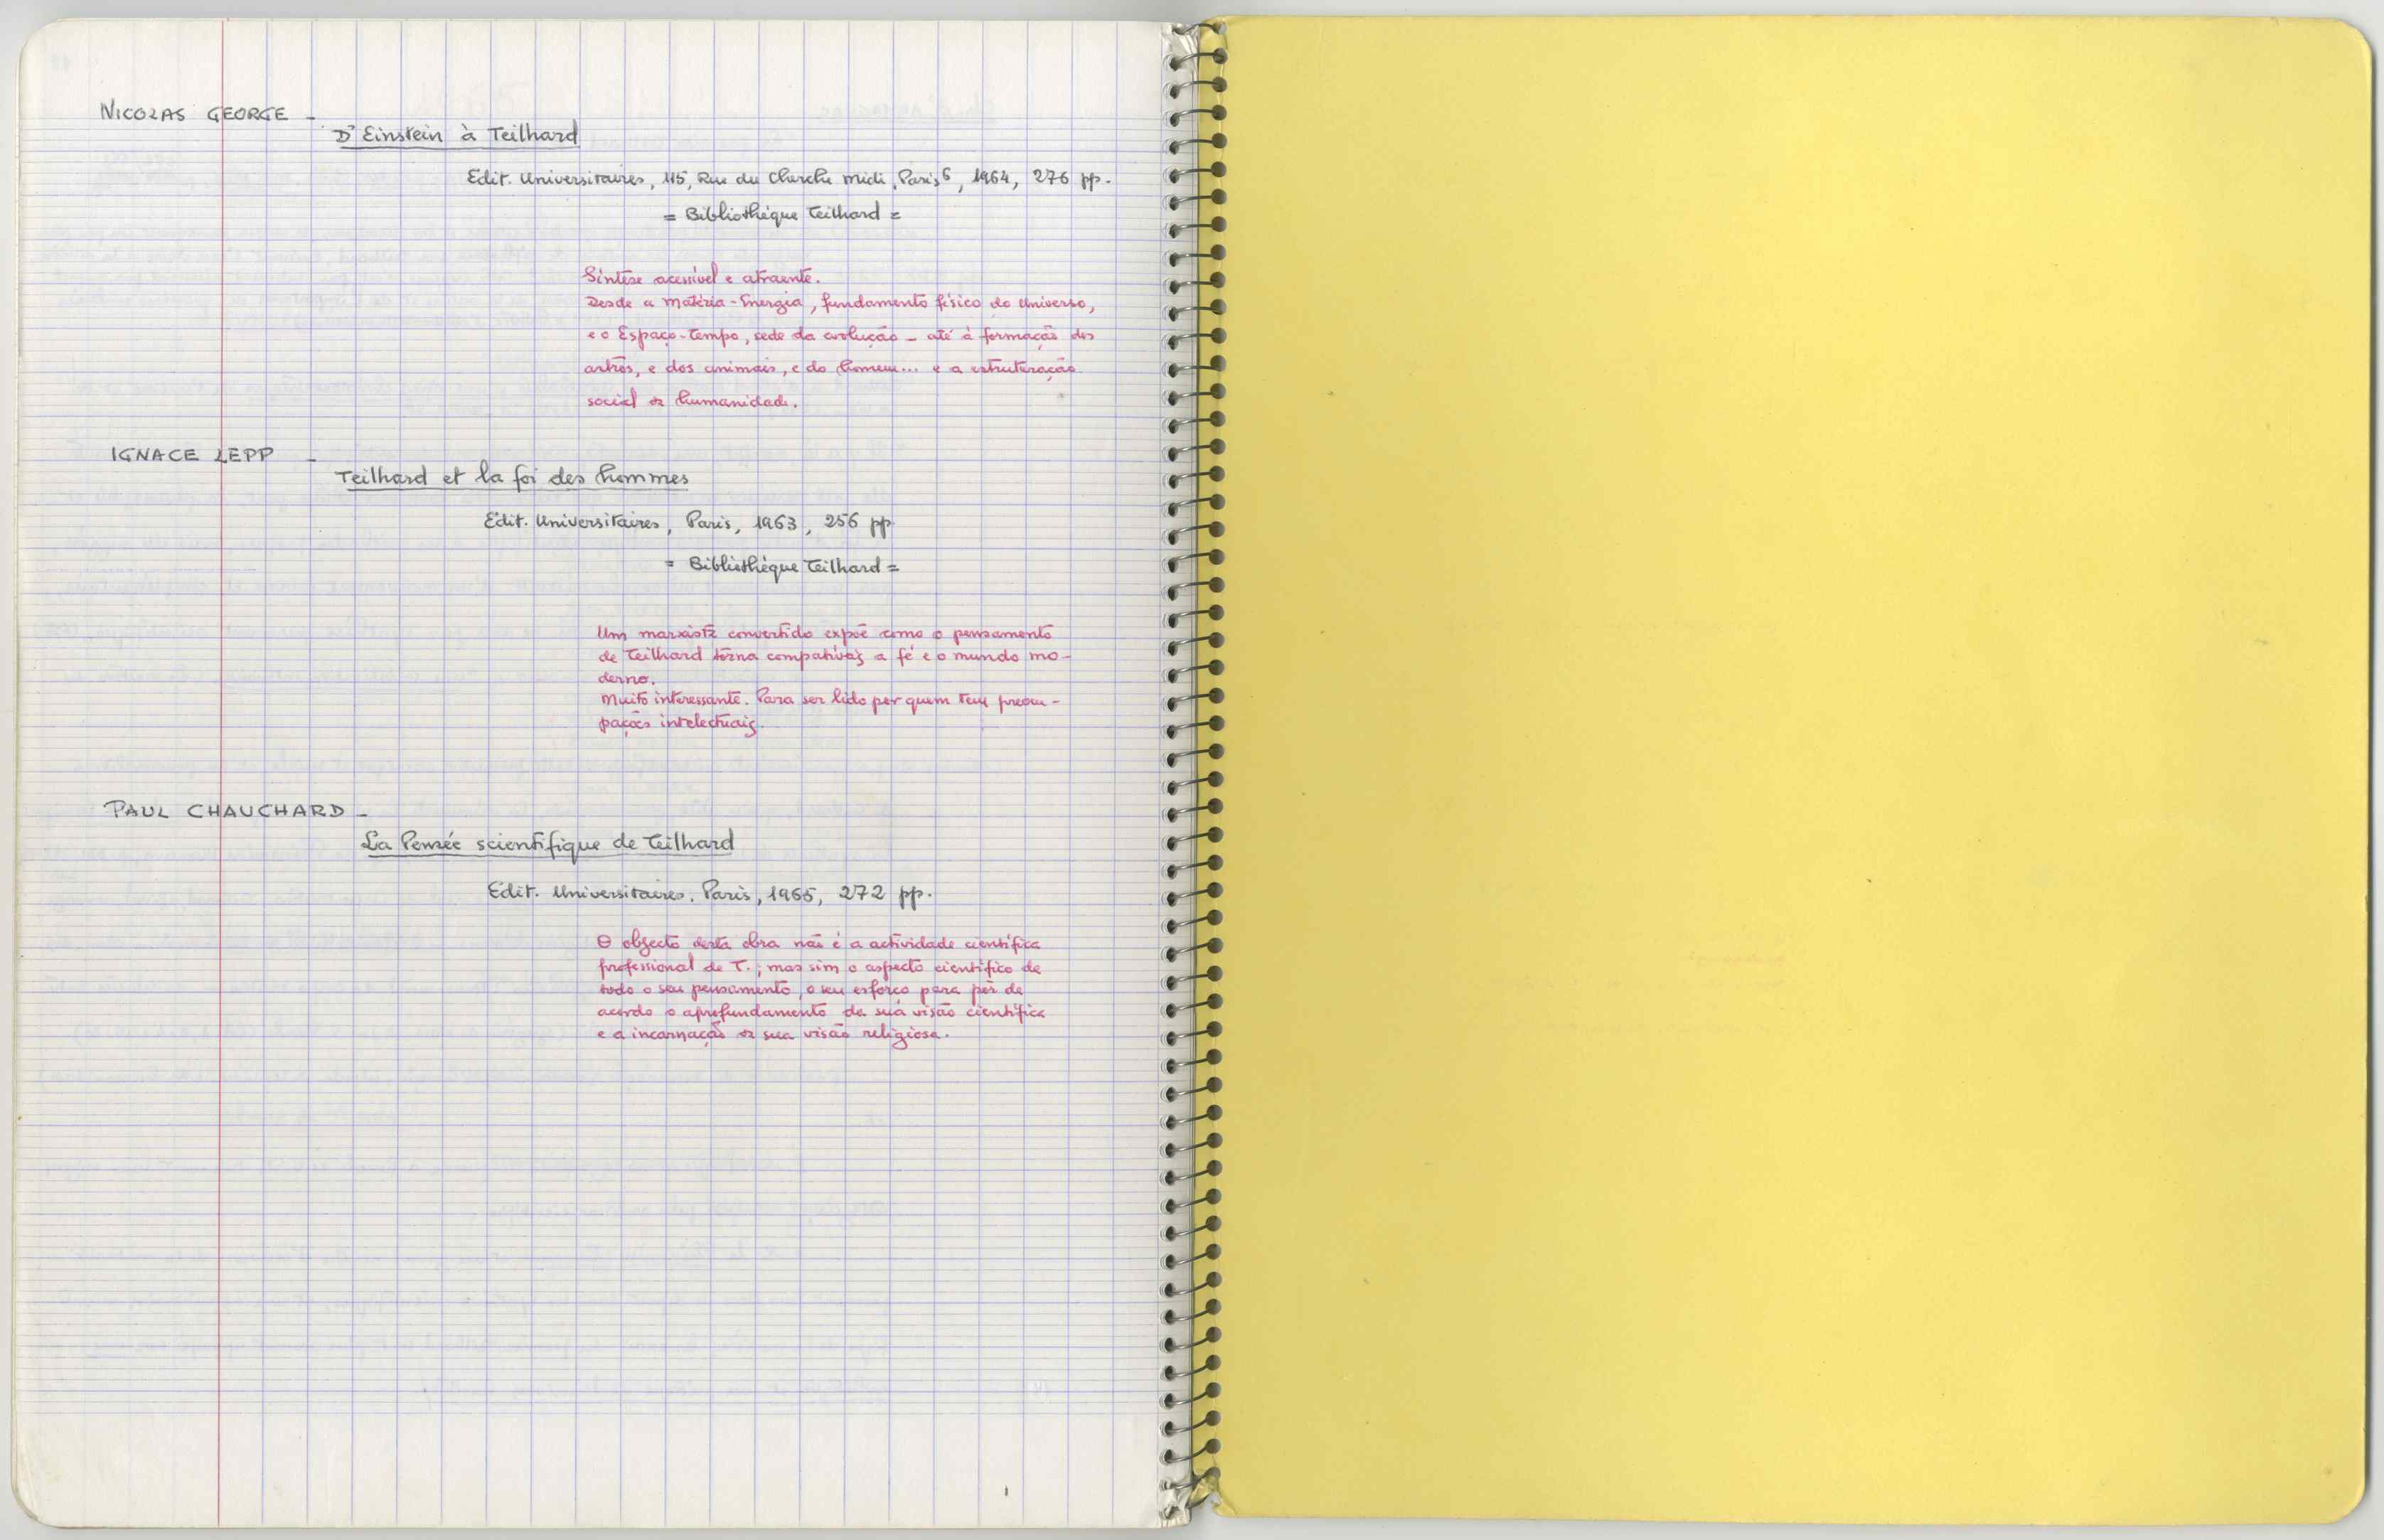 NICOLAS GEORGE -
D'Einstein à Teilhard
Edit. Universitaires, 115, Rue du Cherche Midi, Paris 6, 1964, 276 pp.
= Bibliothèque Teilhard =
Síntese acessível e atraente.
Desde a Matéria-Energia, fundamento físico do Universo,
e o Espaço-Tempo, sede da evolução - até à formação dos
astros, e dos animais, e do homem... e a estruturação
social da humanidade.
IGNACE LEPP -
Teilhard et la foi des hommes
Edit. Universitaires, Paris, 1963, 256 pp
= Bibliothèque Teilhard =
Um marxista convertido expõe como o pensamento
de Teilhard torna compatíveis a fé e o mundo mo-
derno.
Muito interessante. Para ser lido por quem tem preocu-
pações intelectuais.
PAUL CHAUCHARD -
La Pensée scientifique de Teilhard
Edit. Universitaires, Paris, 1965, 272 pp.
O objecto desta obra não é a actividade científica
professional de T.; mas sim o aspecto científico de
todo o seu pensamento, o seu esforço para pôr de
acordo o aprofundamento da sua visão científica
e a incarnação da sua visão religiosa.